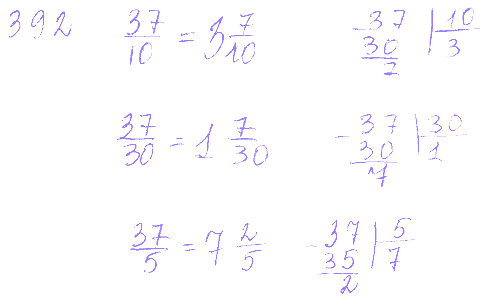 392 37/10 = 3 7/10 -37 |10
30 3
7
37/30 = 1 7/30 -37 |30
30 1
7
37/5 = 7 2/5 -37 |5
35 7
2